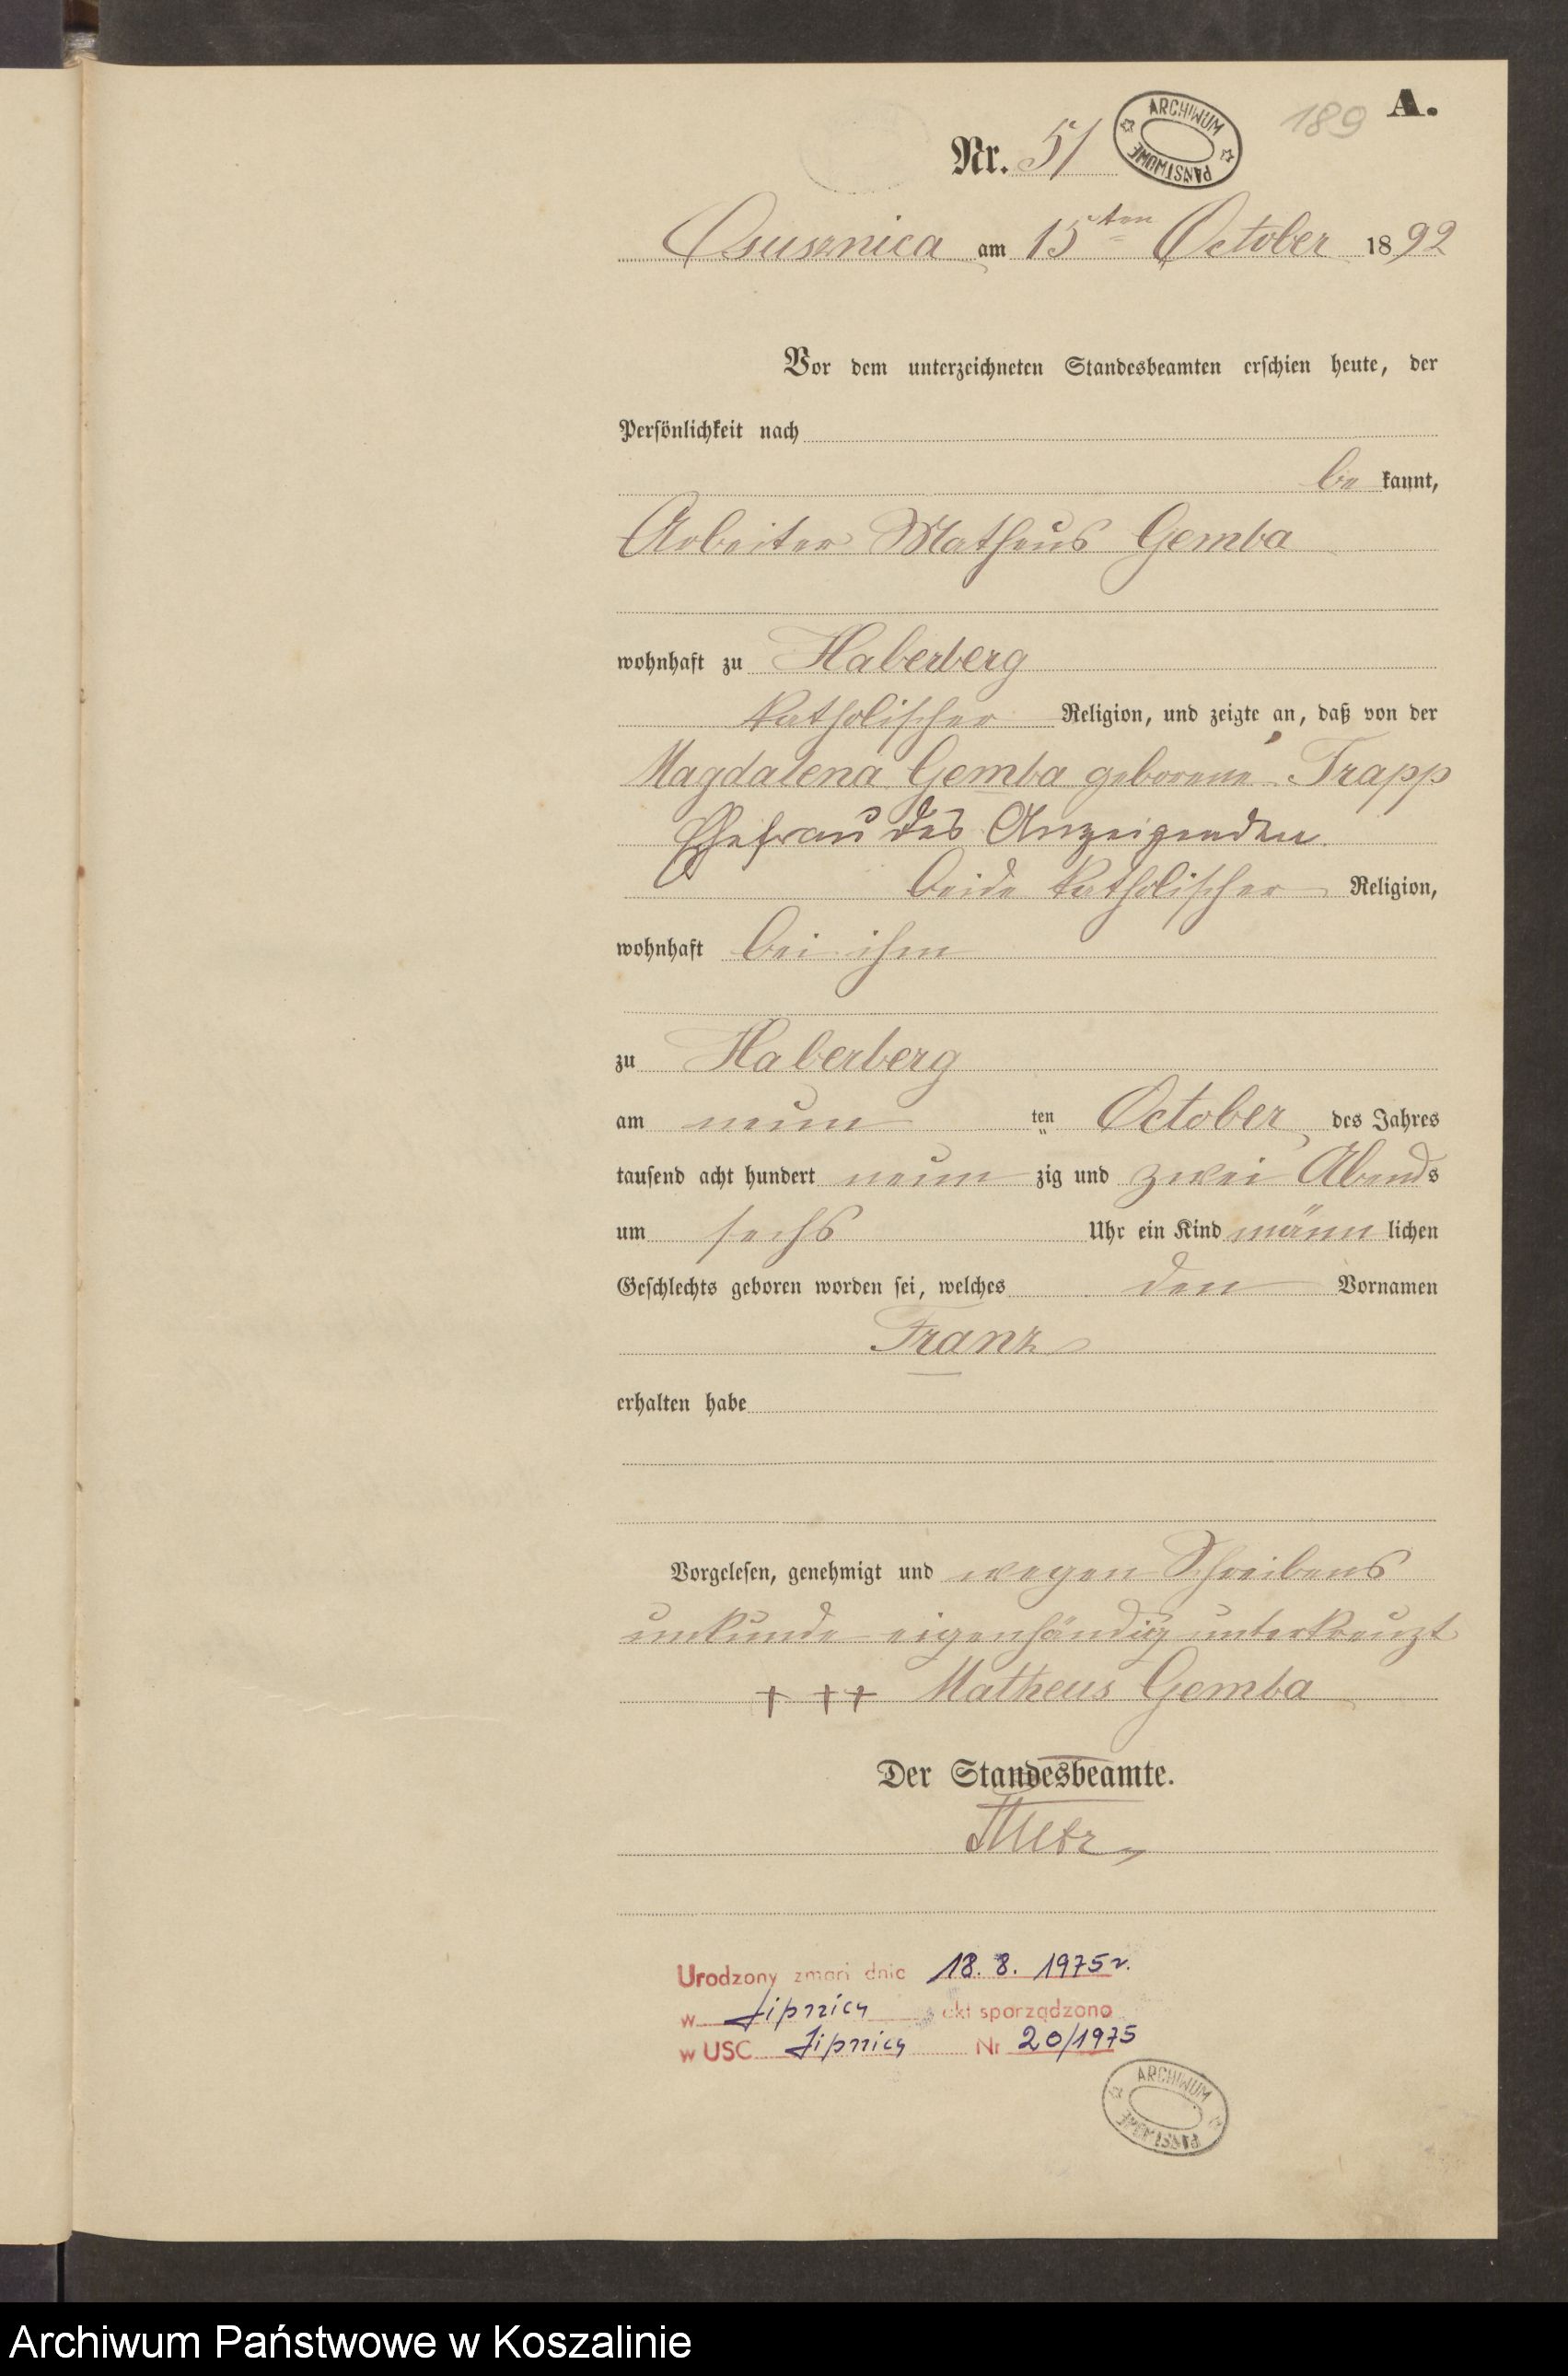 A.
189
Nr. 51
ARCHIWUM PAŃSTWOWE
Osusznica am 15ten October 1892
Vor dem unterzeichneten Standesbeamten erschien heute, der
Persönlichkeit nach
be kannt,
Arbeiter Matheus Gemba
wohnhaft zu Haberberg
katholischer Religion, und zeigte an, daß von der
Magdalena Gemba geborene Trapp
Ehefrau des Anzeigenden.
beide katholischer Religion,
wohnhaft bei ihm
zu Haberberg
am neun ten October des Jahres
tausend acht hundert neun zig und zwei Abends
um sechs Uhr ein Kind männ lichen
Geschlechts geboren worden sei, welches den Vornamen
Franz
erhalten habe
Vorgelesen, genehmigt und wegen Schreibens
unkunde eigenhändig unterkreuzt
+ ++ Matheus Gemba
Der Standesbeamte.
Urodzony zmarł dnia 18. 8. 1975 r.
w Lipnicy akt sporządzono
w USC Lipnicy Nr 20/1975
ARCHIWUM PAŃSTWOWE
Archiwum Państwowe w Koszalinie